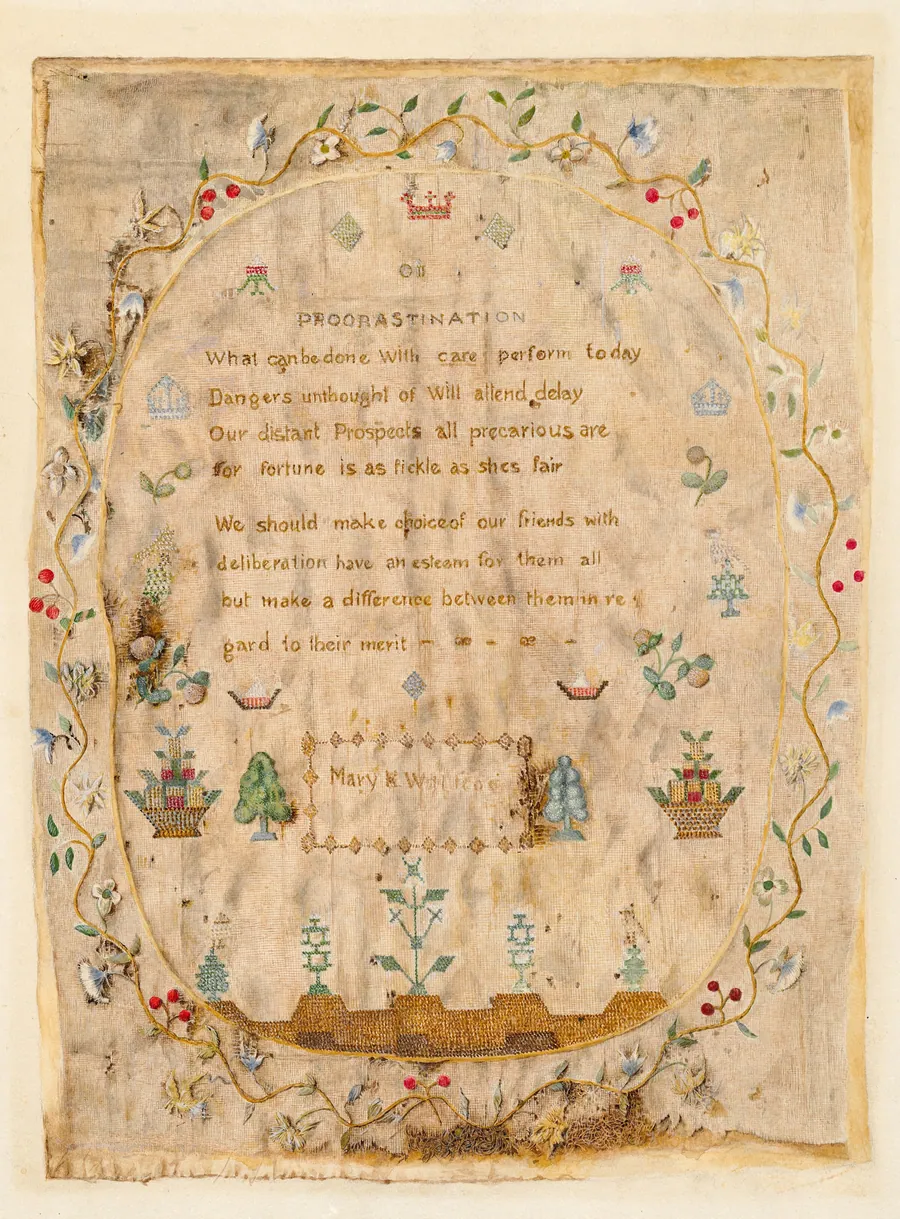 On
PROCRASTINATION
What can be done With care perform to day
Dangers unthought of Will attend delay
Our distant Prospects all precarious are
for fortune is as fickle as shes fair
We should make choice of our friends with
deliberation have an esteem for them all
but make a difference between them in re
gard to their merit
Mary K